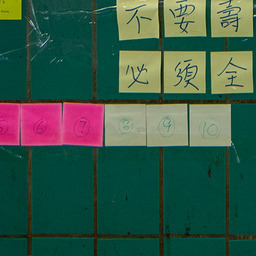 不要壽
必須全
⑥⑦⑧⑨⑩